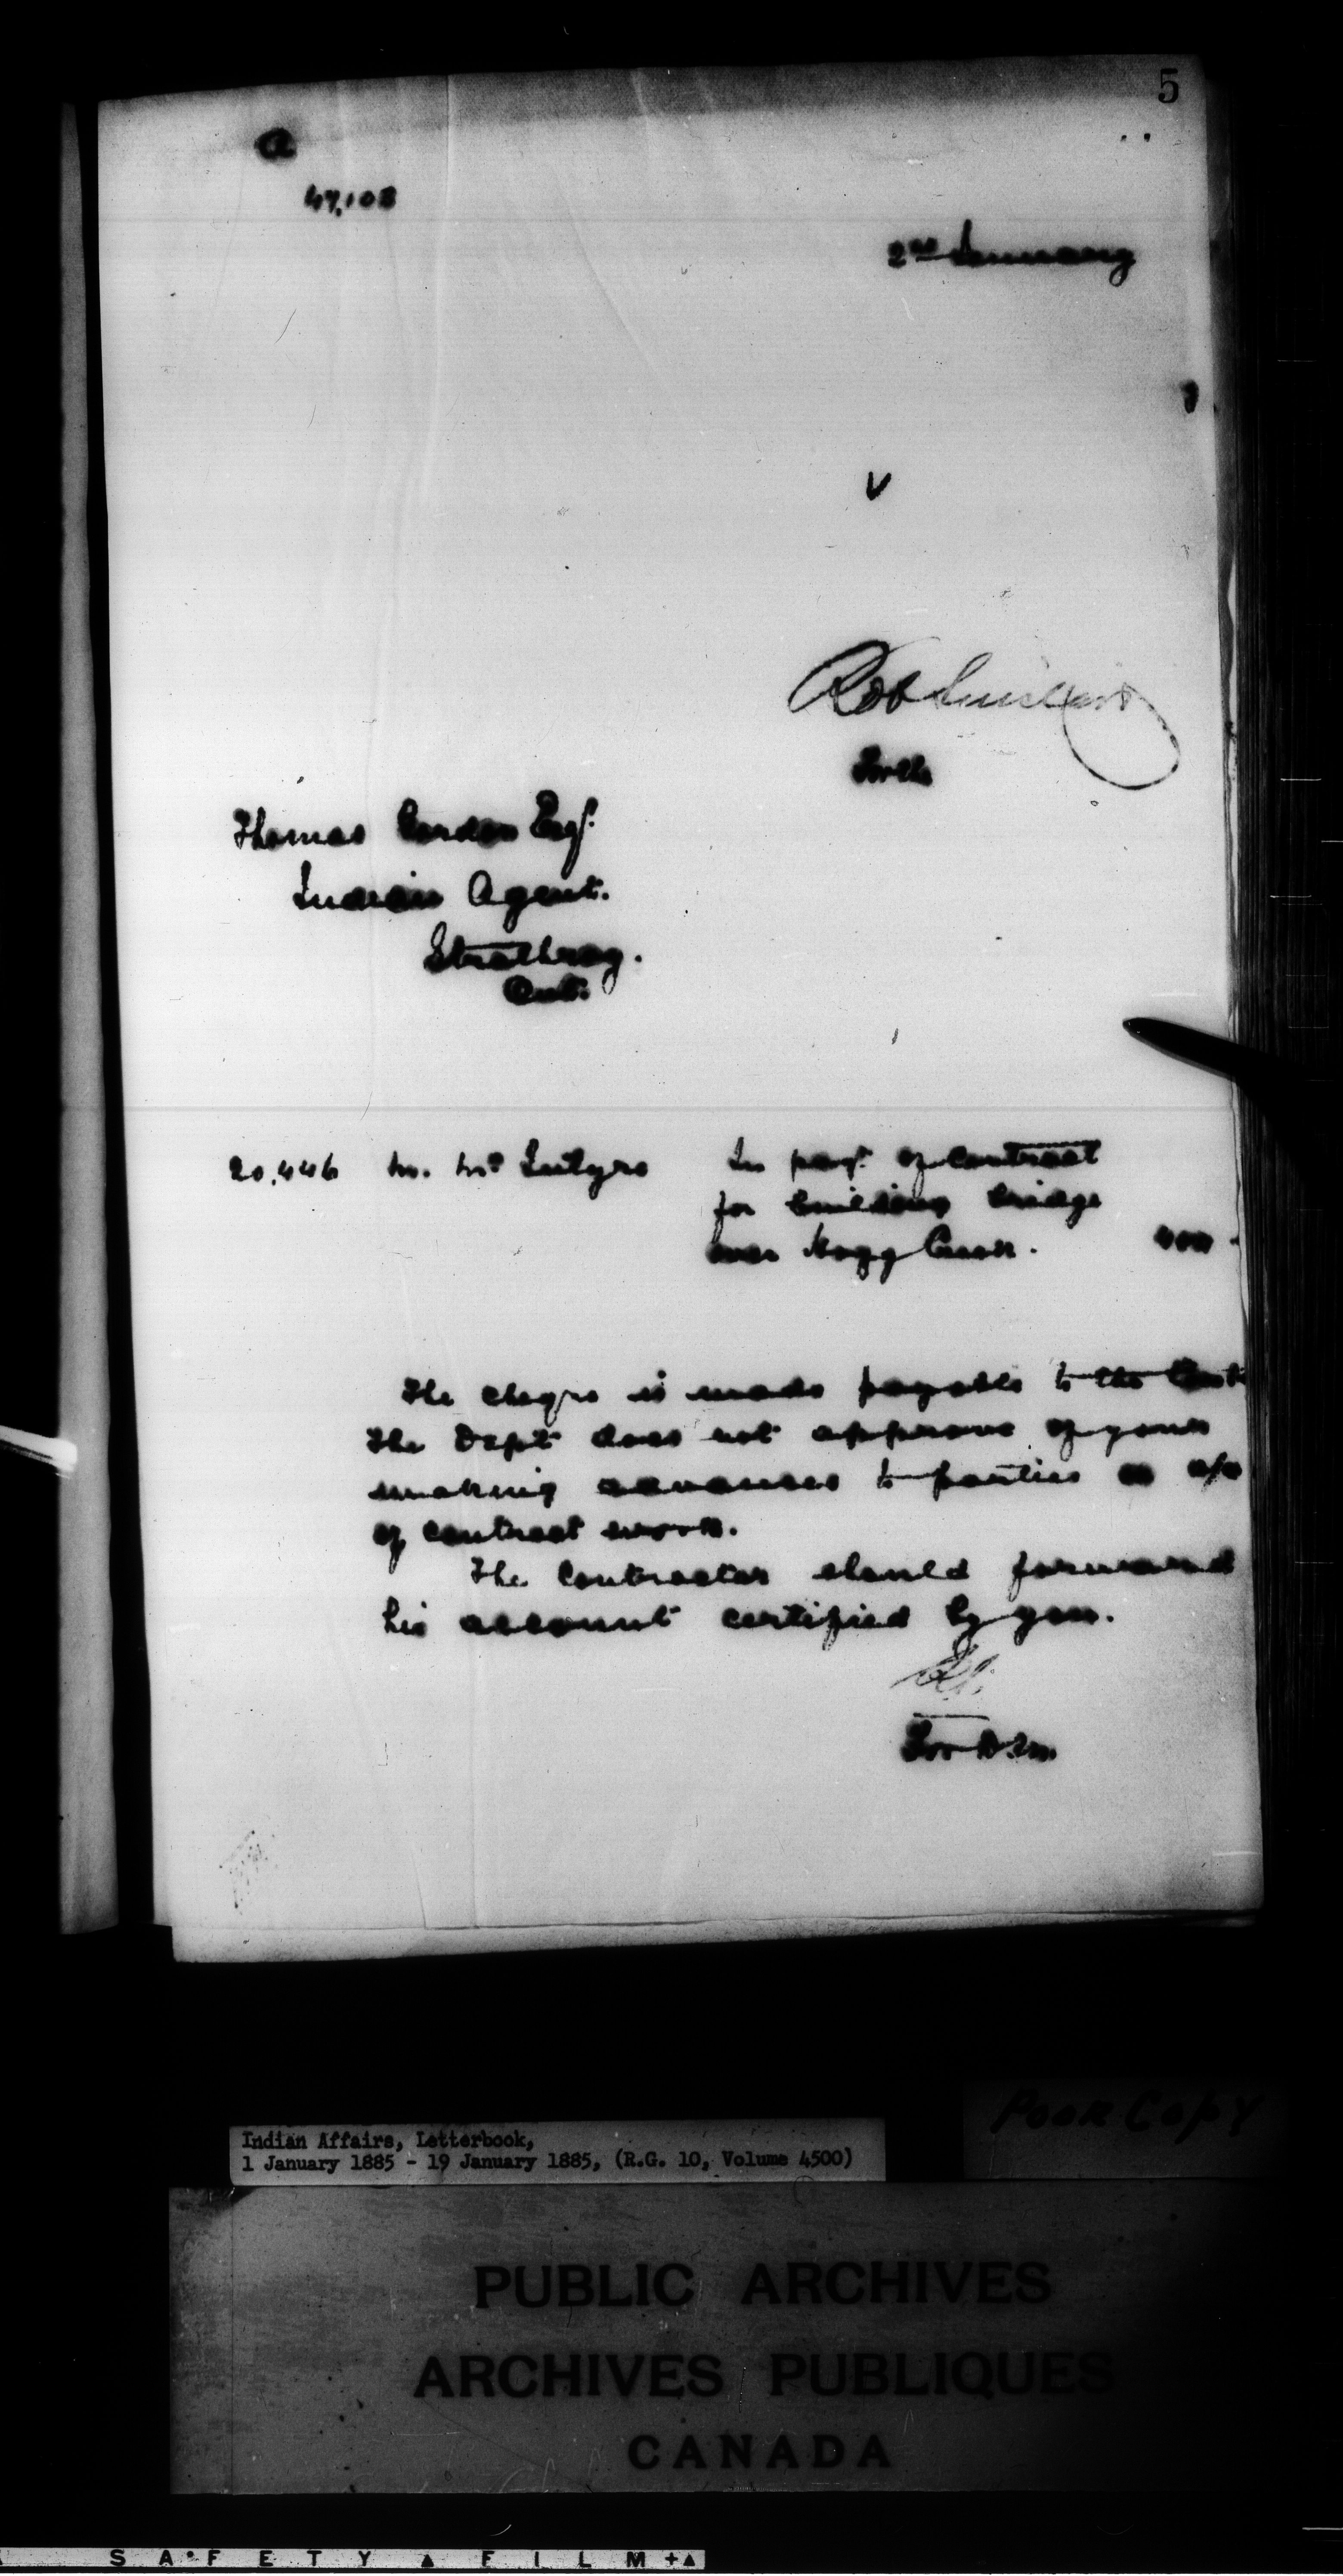 5
a
47,103
2nd January
V
Rob Sinclair
For the
Thomas Gordon Esq.
Indian Agent.
Strathroy.
Ont.
20,446 M. McIntyre In payt. of contract
for building bridge
over Hogg Creek. 400 -
The cheque is made payable to the Contr
The Dept does not approve of your
making advances to parties on a/c
of contract work.
The Contractor should forward
his account certified by you.
For D.S.
Poor Copy
Indian Affairs, Letterbook,
1 January 1885 - 19 January 1885, (R.G. 10, Volume 4500)
PUBLIC ARCHIVES
ARCHIVES PUBLIQUES
CANADA
SAFETY ▲ FILM +▲